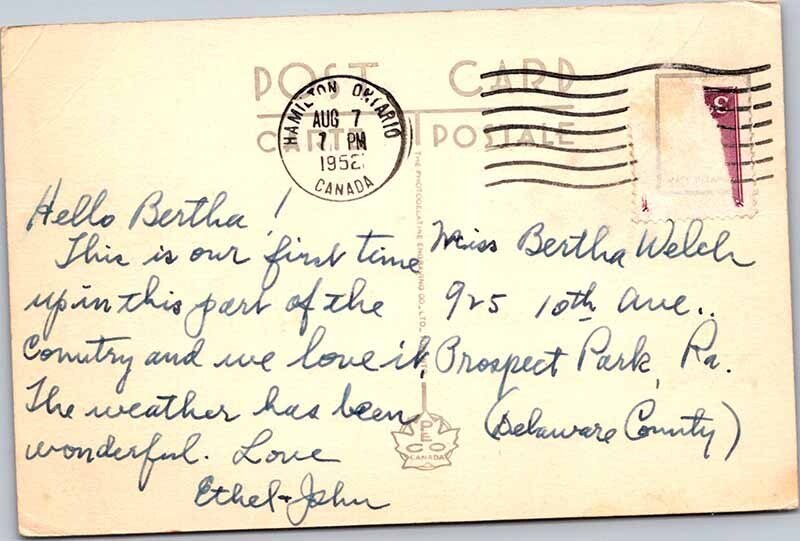 POST CARD
CARTE POSTALE
HAMILTON ONTARIO
AUG 7
7 PM
1952
CANADA
3
Hello Bertha!
This is our first time
up in this part of the
Country and we love it.
The weather has been
wonderful. Love
Ethel + John
THE PHOTOGELATINE ENGRAVING CO., LTD.
PECO
CANADA
Miss Bertha Welch
925 10th Ave.
Prospect Park, Pa.
(Delaware County)